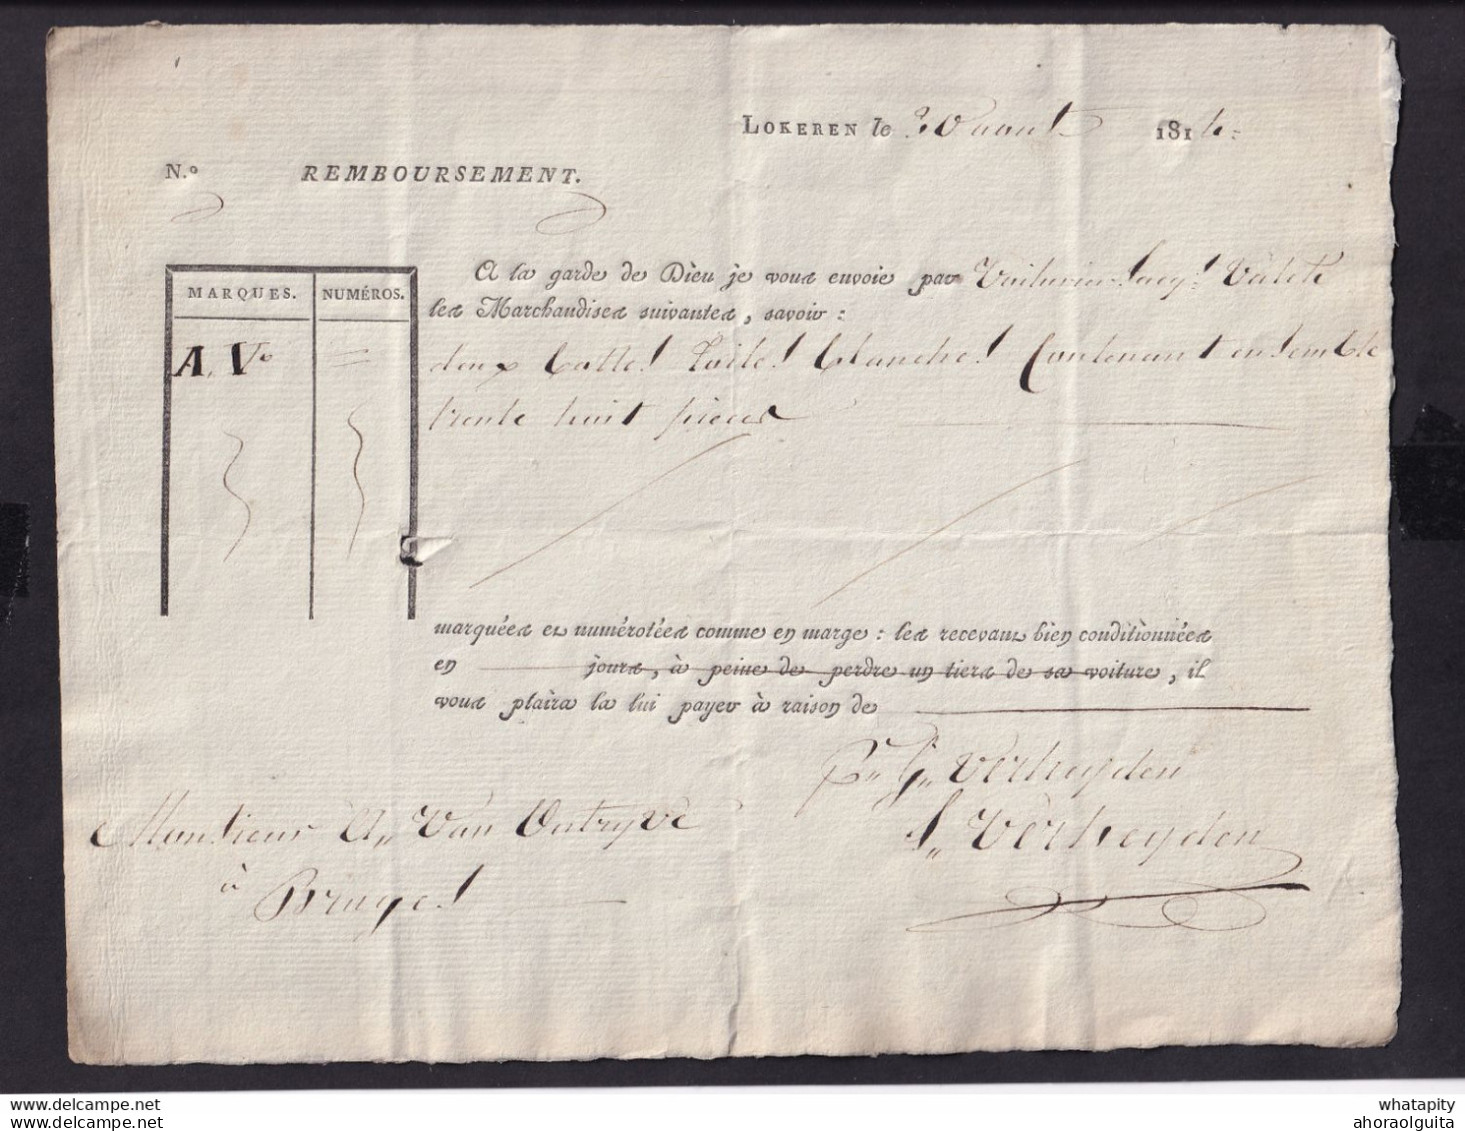 LOKEREN le 30 aout 181
N.º REMBOURSEMENT.
MARQUES. NUMÉROS.
A. Vº =
A la garde de Dieu je vous envoie par Voiturier Jacqs
les Marchandises suivantes, savoir :
deux Toiles blanches Contenant ensemble
trente huit pieces
marquées et numérotées comme en marge : les recevant bien conditionnées
en jours, à peine de perdre un tiers de sa voiture, il
vous plaira la lui payer à raison de
Pr G. Verheyden
Monsieur A. Van Outryve
S. Verheyden
à Bruges
delcampe.net
delcampe.net
whatapity
ahoraolguita